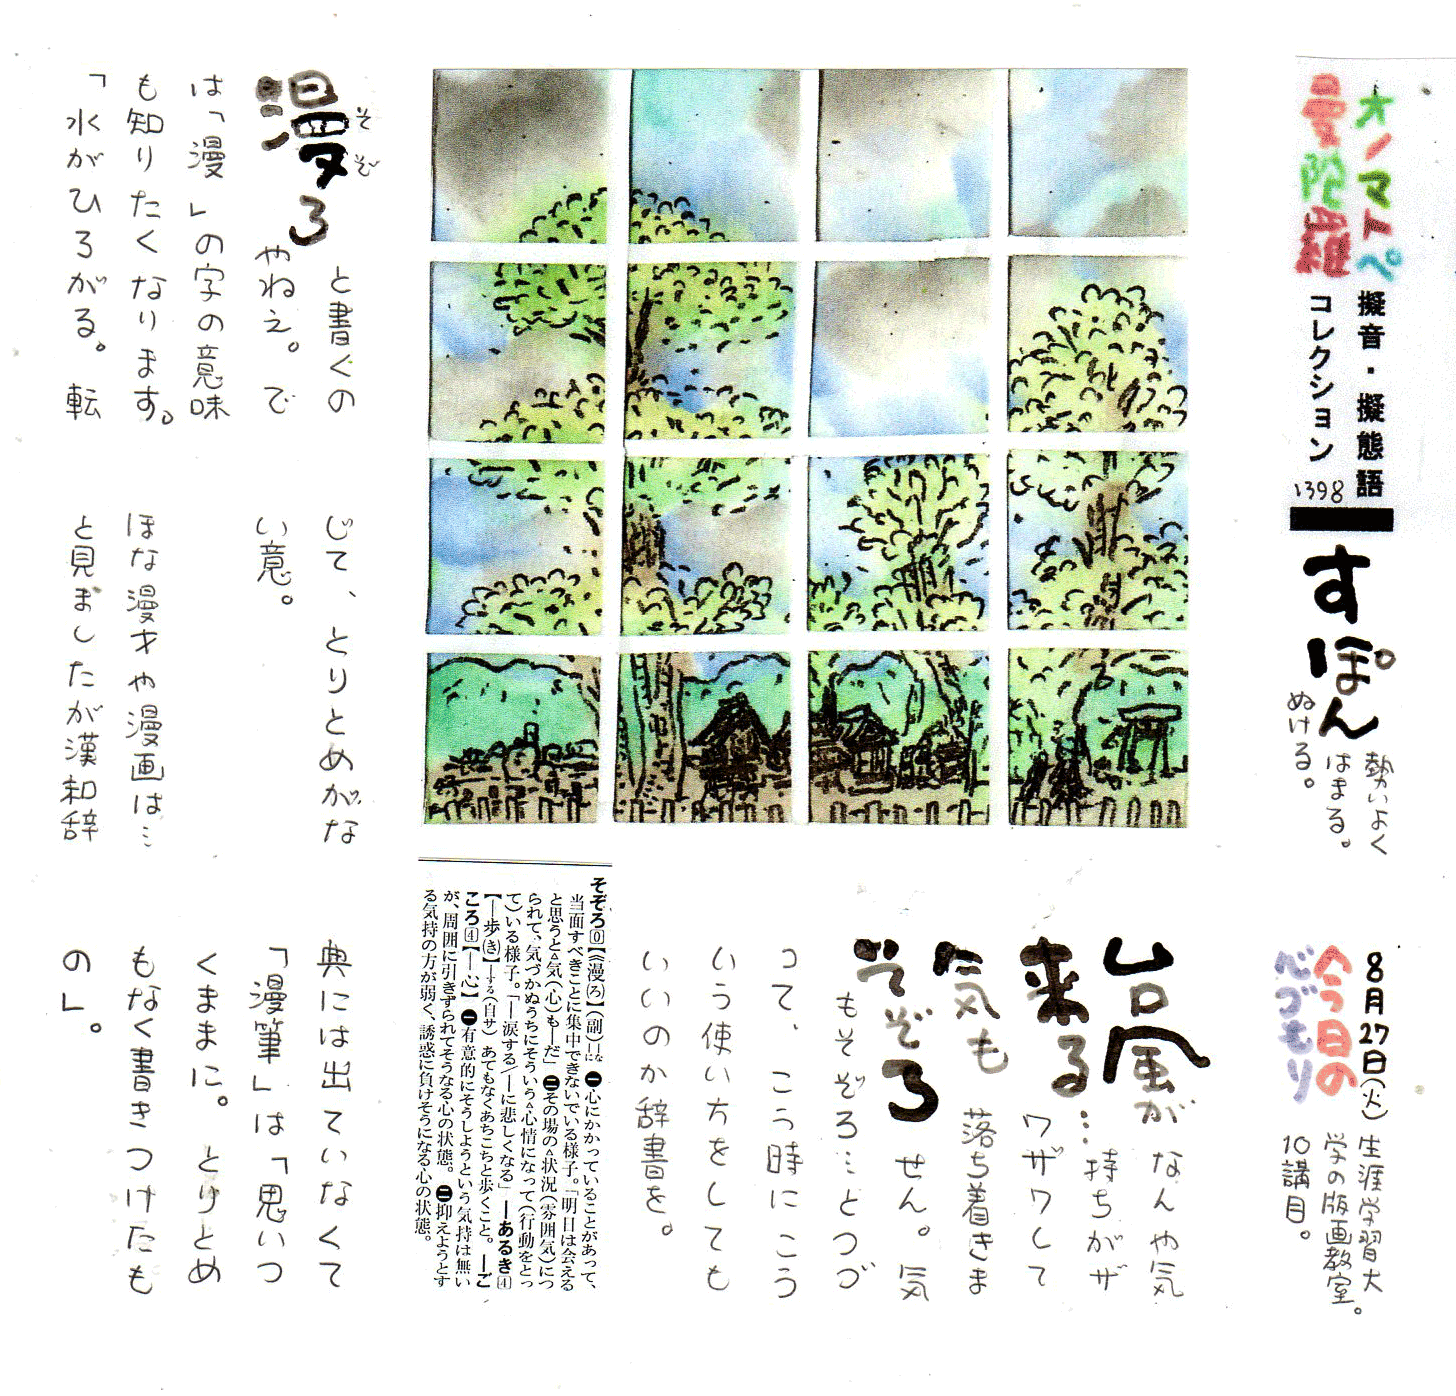 オノマトペ
曼陀羅
擬音・擬態語
コレクション
1398
すぽん
勢いよく
はまる。
ぬける。
8月27日(火)
今日の
心づもり
生涯学習大
学の版画教室。
10講目。
台風が
来る…
気も
そぞろ
なんや気
持ちがザ
ワザワして
落ち着きま
せん。気
もそぞろ…とつづ
って、こう時にこう
いう使い方をしても
いいのか辞書を。
そぞろ[0]【《漫(ろ)】(副)―にな ❶心にかかっていることがあって、
当面すべきことに集中できないでいる様子。「明日は会える
と思うと△気(心)も―だ」❷その場の△状況(雰囲気)につ
られて、気づかぬうちにそういう△心情になって(行動をとっ
て)いる様子。「―涙する/―に悲しくなる」―あるき[4]
【―歩(き)】―する(自サ) あてもなくあちこちと歩くこと。―ご
ころ[4]【―心】❶有意的にそうしようという気持は無い
が、周囲に引きずられてそうなる心の状態。❷抑えようとす
る気持の方が弱く、誘惑に負けそうになる心の状態。
漫ろ
そぞ
と書くの
やねえ。で
は「漫」の字の意味
も知りたくなります。
「水がひろがる。転
じて、とりとめがな
い意。
ほな漫才や漫画は…
と見ましたが漢和辞
典には出ていなくて
「漫筆」は「思いつ
くままに。とりとめ
もなく書きつけたも
の」。